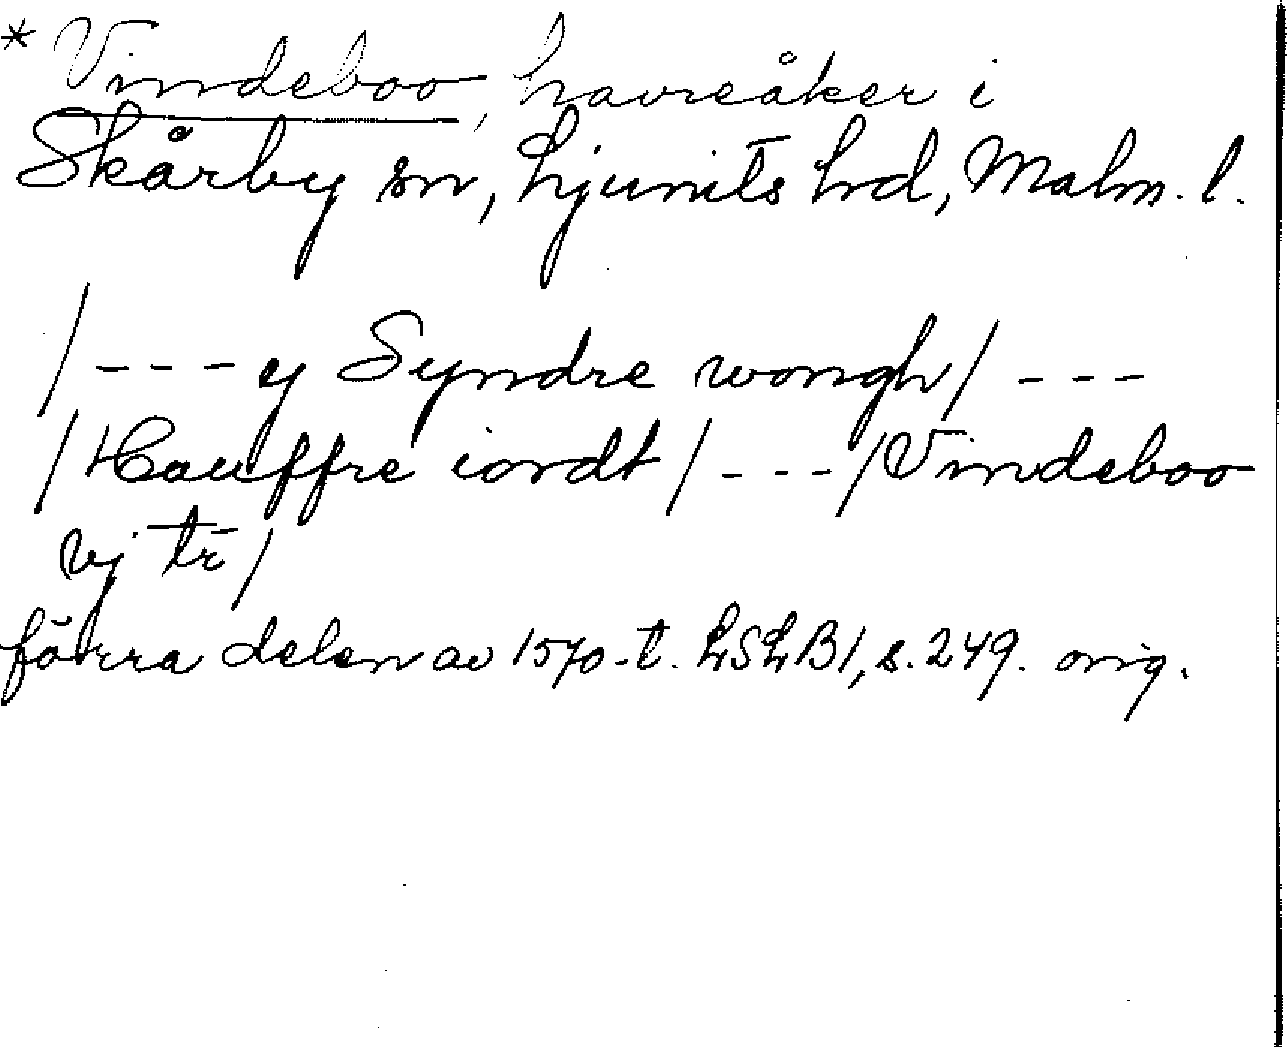 * Vindeboo, havreåker i
Skårby sn, Ljunits hrd, Malm. l.
/ - - - y Syndre wongh / - - -
/ Hauffre iordt / - - - / Vindeboo
vj tr /
förra delen av 1570-t. LSLB1, s. 249. orig.